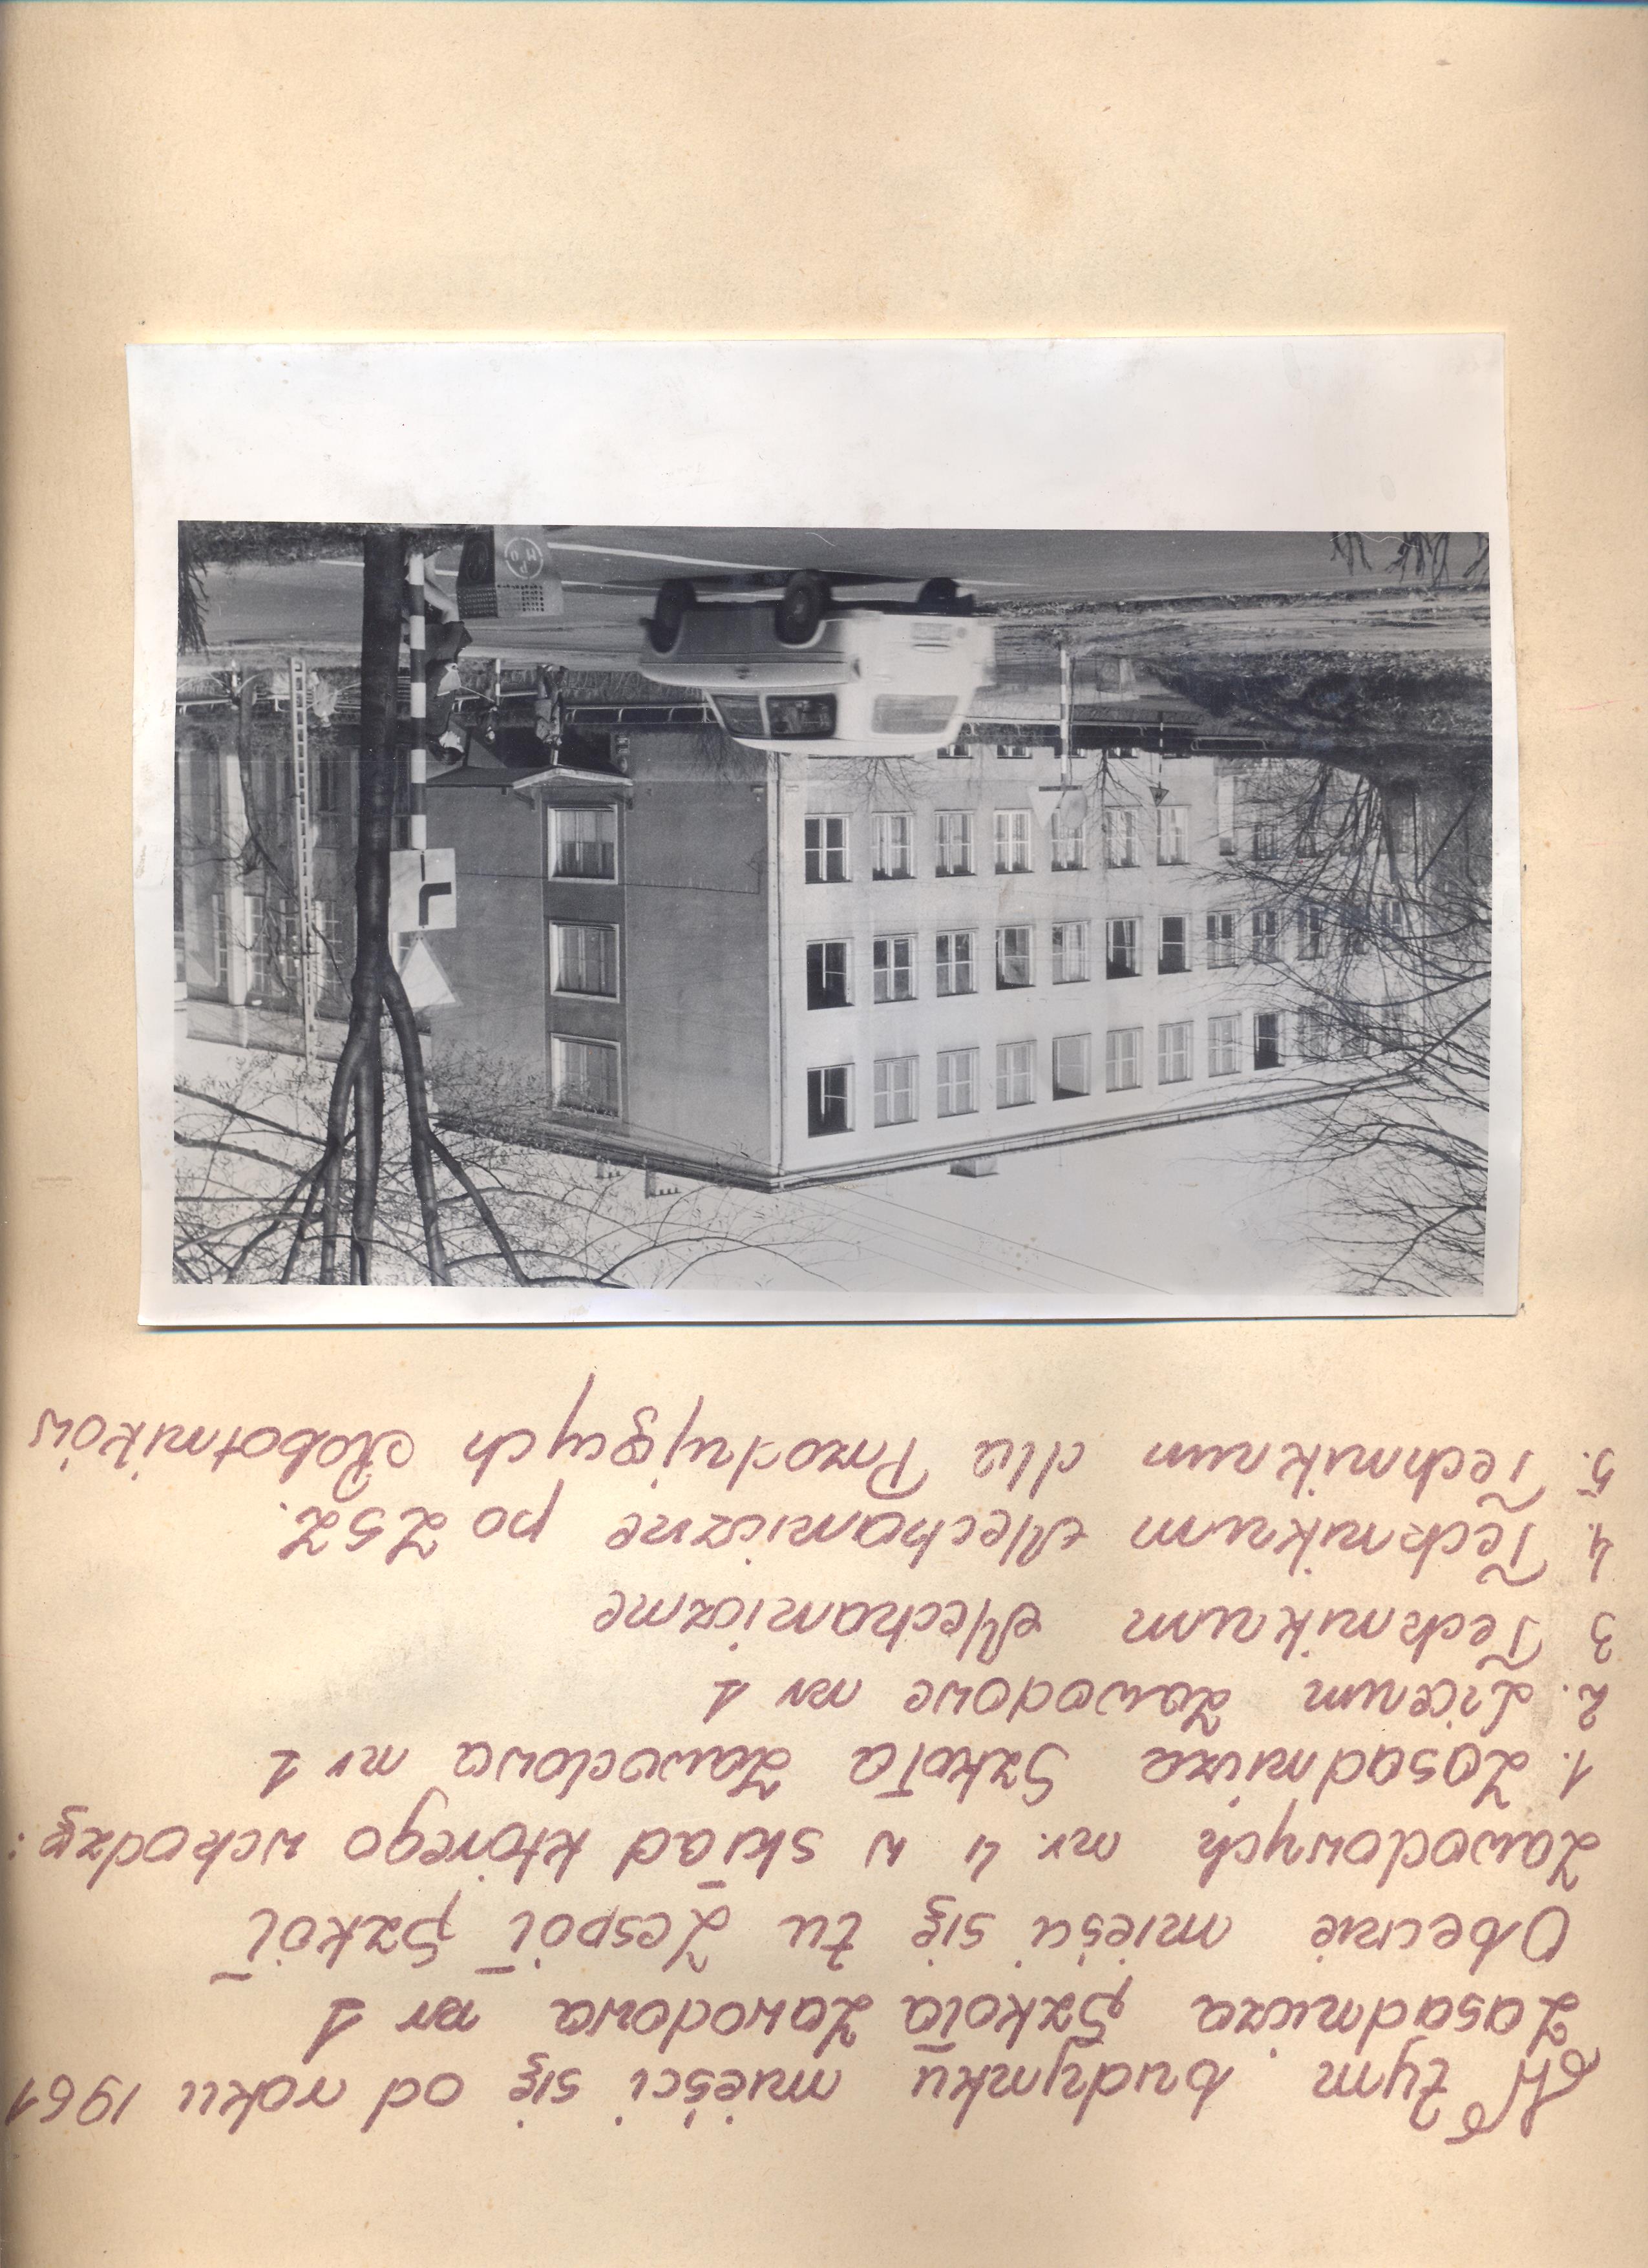 W tym budynku mieści się od roku 1961
Zasadnicza Szkoła Zawodowa nr 1
Obecnie mieści się tu Zespół Szkół
Zawodowych nr. 4 w skład którego wchodzą:
1. Zasadnicza Szkoła Zawodowa nr 1
2. Liceum Zawodowe nr 1
3 Technikum Mechaniczne
4. Technikum Mechaniczne po ZSZ.
5. Technikum dla Przodujących Robotników
MPO